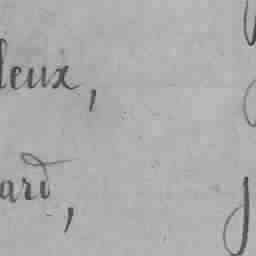 leux,
ard,